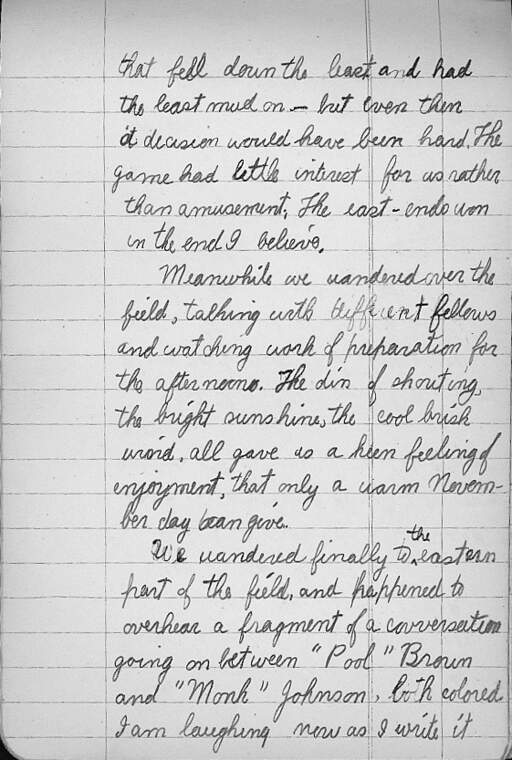 that fell down the least and had
the least mud on — but even then
a decision would have been hard. The
game had little interest for us rather
than amusement. The east-ends won
in the end I believe.
Meanwhile we wandered over the
field, talking with different fellows
and watching work of preparation for
the afternoons. The din of shouting,
the bright sunshine, the cool brisk
wind, all gave us a keen feeling of
enjoyment, that only a warm Novem-
ber day can give.
We wandered finally to the eastern
part of the field, and happened to
overhear a fragment of a conversation
going on between "Pool" Brown
and "Monk" Johnson, both colored
I am laughing now as I write it